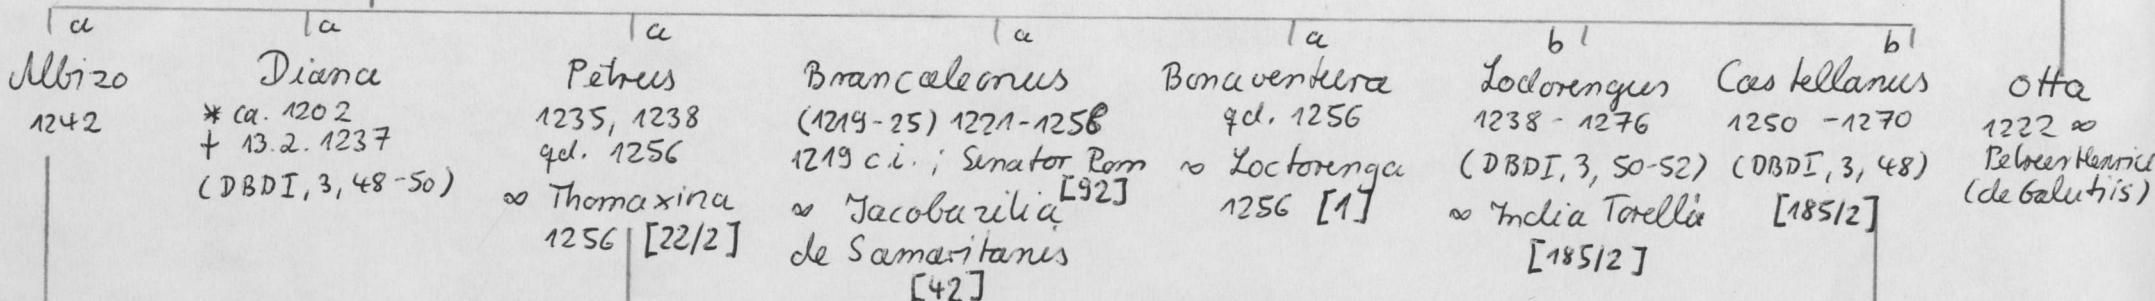 a
Albizo
1242
a
Diana
* ca. 1202
† 13.2.1237
(DBDI, 3, 48-50)
a
Petrus
1235, 1238
qd. 1256
∞ Thomaxina
1256 [22/2]
a
Brancaleonus
(1219-25) 1221-1258
1219 c.i.; Senator Rom
[92]
∞ Jacobazilia
de Samaritanis
[42]
a
Bonaventura
qd. 1256
∞ Loctorenga
1256 [1]
b
Lodorengus
1238 - 1276
(DBDI, 3, 50-52)
∞ India Torellia
[185/2]
b
Castellanus
1250 - 1270
(DBDI, 3, 48)
[185/2]
Otta
1222 ∞
Petrus Henrici
(de Galutiis)